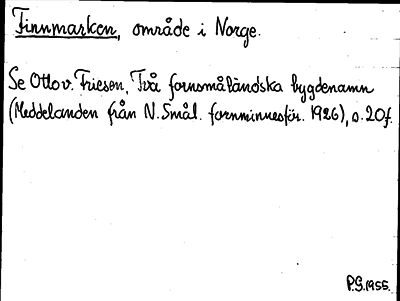 Finnmarken, område i Norge.
Se Otto v. Friesen, Två fornsmåländska bygdenamn
(Meddelanden från N. Smål. fornminnesför. 1926), s. 20 f.
P.G. 1955.